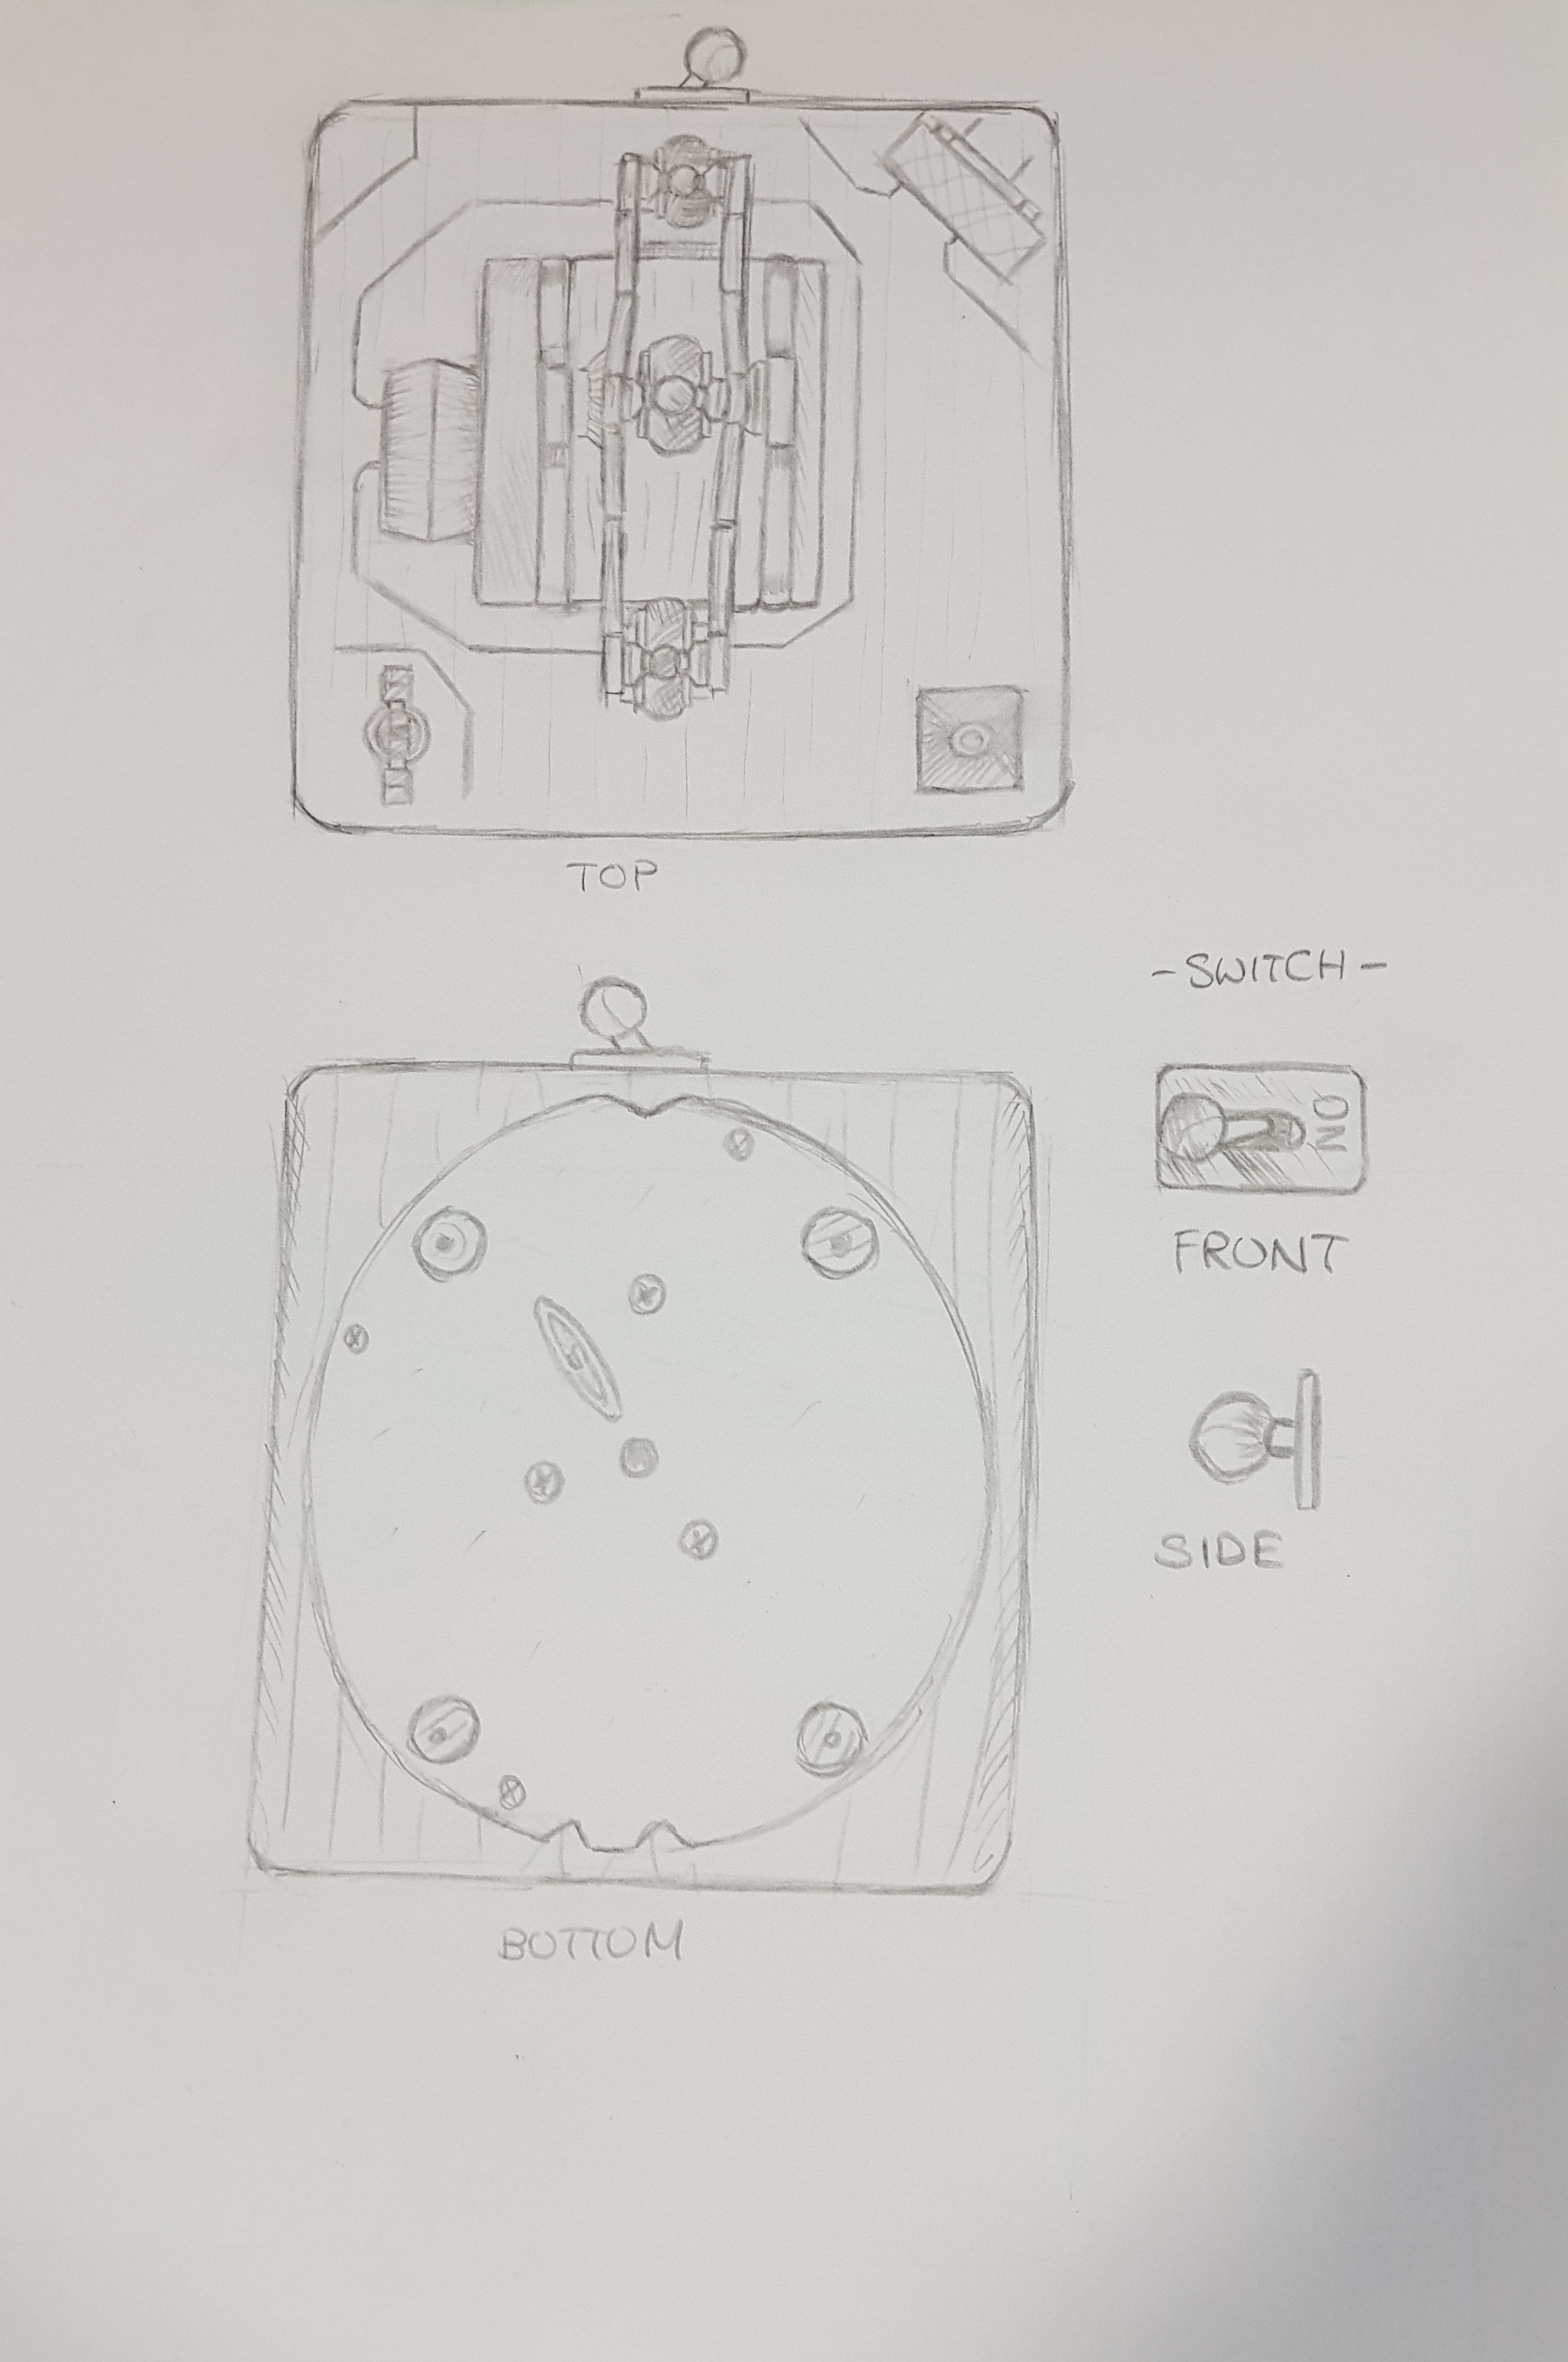 TOP
-SWITCH-
ON
FRONT
SIDE
BOTTOM